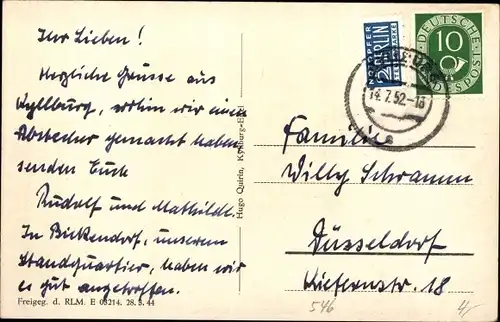 Ihr Lieben!
Herzliche Grüsse aus
Kyllburg, wohin wir einen
Abstecher gemacht haben
senden Euch
Rudolf und Mathilde.
In Bickendorf, unserem
Standquartier, haben wir
es gut angetroffen.
Freigeg. d. RLM. E 03214. 28. 3. 44
Hugo Quirin, Kyllburg-Eifel
NOTOPFER
2 BERLIN
STEUERMARKE
DEUTSCHE POST
10
14.7.52-18
a
Familie
Willy Schramm
Düsseldorf
Kiefernstr. 18
546
4,-